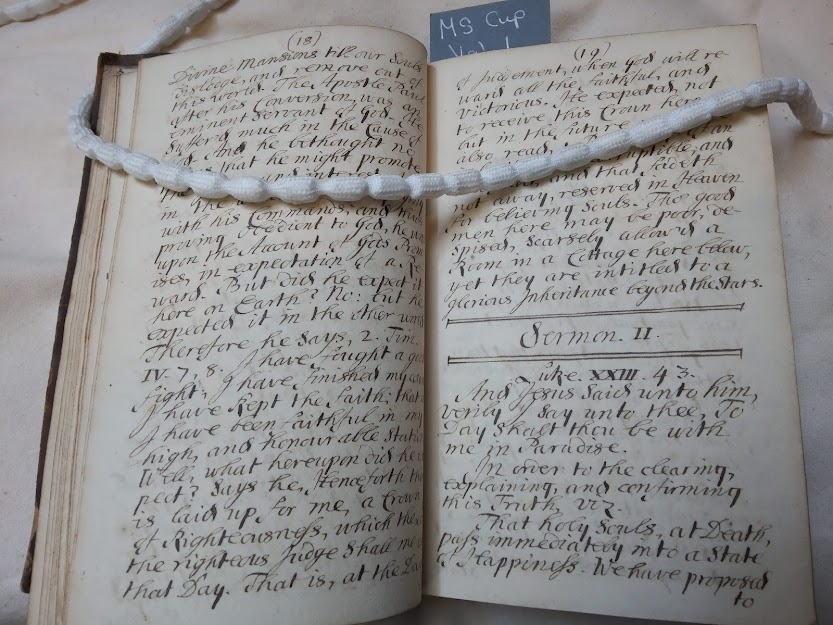 MS Cup
Vol. 1
(18)
Divine Mansions till our Souls
dislodge, and remove out of
this world. The Apostle Paul
after his Conversion, was an
eminent Servant of God. He
Suffered much in the Cause of
God. And he bethought
that he might promote
in the
with his Commands, and
proving obedient to God, he
upon the Account of Gods
ises, in expectation of a Re
ward. But did he expect it
here on Earth? No: but he
expected it in the other world
Therefore he Says, 2. Tim.
IV. 7, 8. I have fought a good
fight, I have finished my
I have kept the Faith; that
I have been faithful in my
high, and honourable Stati
Well, what hereupon did he
pect? Says he, Henceforth the
is laid up for me, a Crown
of Righteousness, which the
the righteous Judge Shall
that Day. That is, at the Da
(19)
of Judgement, when God will re-
ward all the faithful, and
victorious. He expected, not
to receive this Crown here,
but in the future
also read,
and that fadeth
not away, reserved in Heaven
for believing Souls. Tho' good
men here may be poor, de-
spised, Scarsely allow'd a
Room in a Cottage here below,
yet they are intitled to a
glorious Inheritance beyond the Stars.
Sermon. II.
Luke. XXIII. 43.
And Jesus Said unto him,
verily I Say unto thee, To
Day Shalt thou be with
me in Paradise.
In order to the clearing,
explaining, and confirming
this Truth, viz.
That holy Souls, at Death,
pass immediately into a State
of Happiness. We have proposed
to